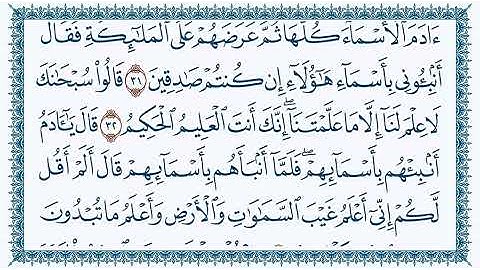 ءَادَمَ ٱلْأَسْمَآءَ كُلَّهَا ثُمَّ عَرَضَهُمْ عَلَى ٱلْمَلَٰٓئِكَةِ فَقَالَ
أَنۢبِـُٔونِى بِأَسْمَآءِ هَٰٓؤُلَآءِ إِن كُنتُمْ صَٰدِقِينَ ٣١ قَالُوا۟ سُبْحَٰنَكَ
لَا عِلْمَ لَنَآ إِلَّا مَا عَلَّمْتَنَآ ۖ إِنَّكَ أَنتَ ٱلْعَلِيمُ ٱلْحَكِيمُ ٣٢ قَالَ يَٰٓـَٔادَمُ
أَنۢبِئْهُم بِأَسْمَآئِهِمْ ۖ فَلَمَّآ أَنۢبَأَهُم بِأَسْمَآئِهِمْ قَالَ أَلَمْ أَقُل
لَّكُمْ إِنِّىٓ أَعْلَمُ غَيْبَ ٱلسَّمَٰوَٰتِ وَٱلْأَرْضِ وَأَعْلَمُ مَا تُبْدُونَ